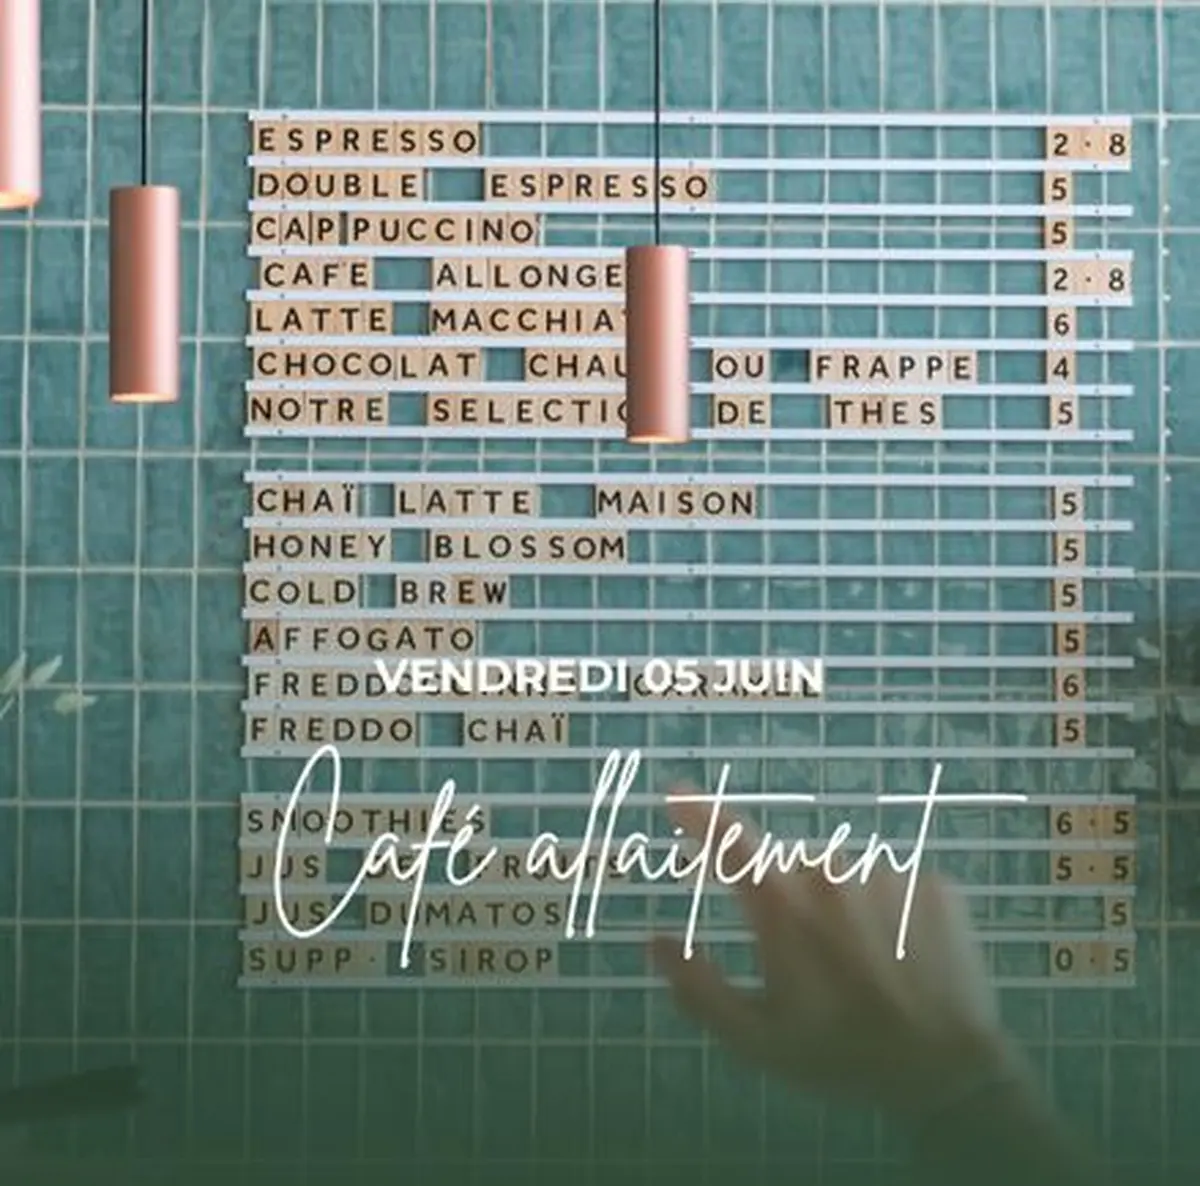 ESPRESSO 2·8
DOUBLE ESPRESSO 5
CAPPUCCINO 5
CAFE ALLONGE 2·8
LATTE MACCHIAT 6
CHOCOLAT CHAU OU FRAPPE 4
NOTRE SELECTIO DE THES 5
CHAÏ LATTE MAISON 5
HONEY BLOSSOM 5
COLD BREW 5
AFFOGATO 5
VENDREDI 05 JUIN
FREDDO CARAMEL 6
FREDDO CHAÏ 5
Café allaitement
SMOOTHIES 6·5
JUS DE FRUITS 5·5
JUS DUMATOS 5
SUPP· SIROP 0·5